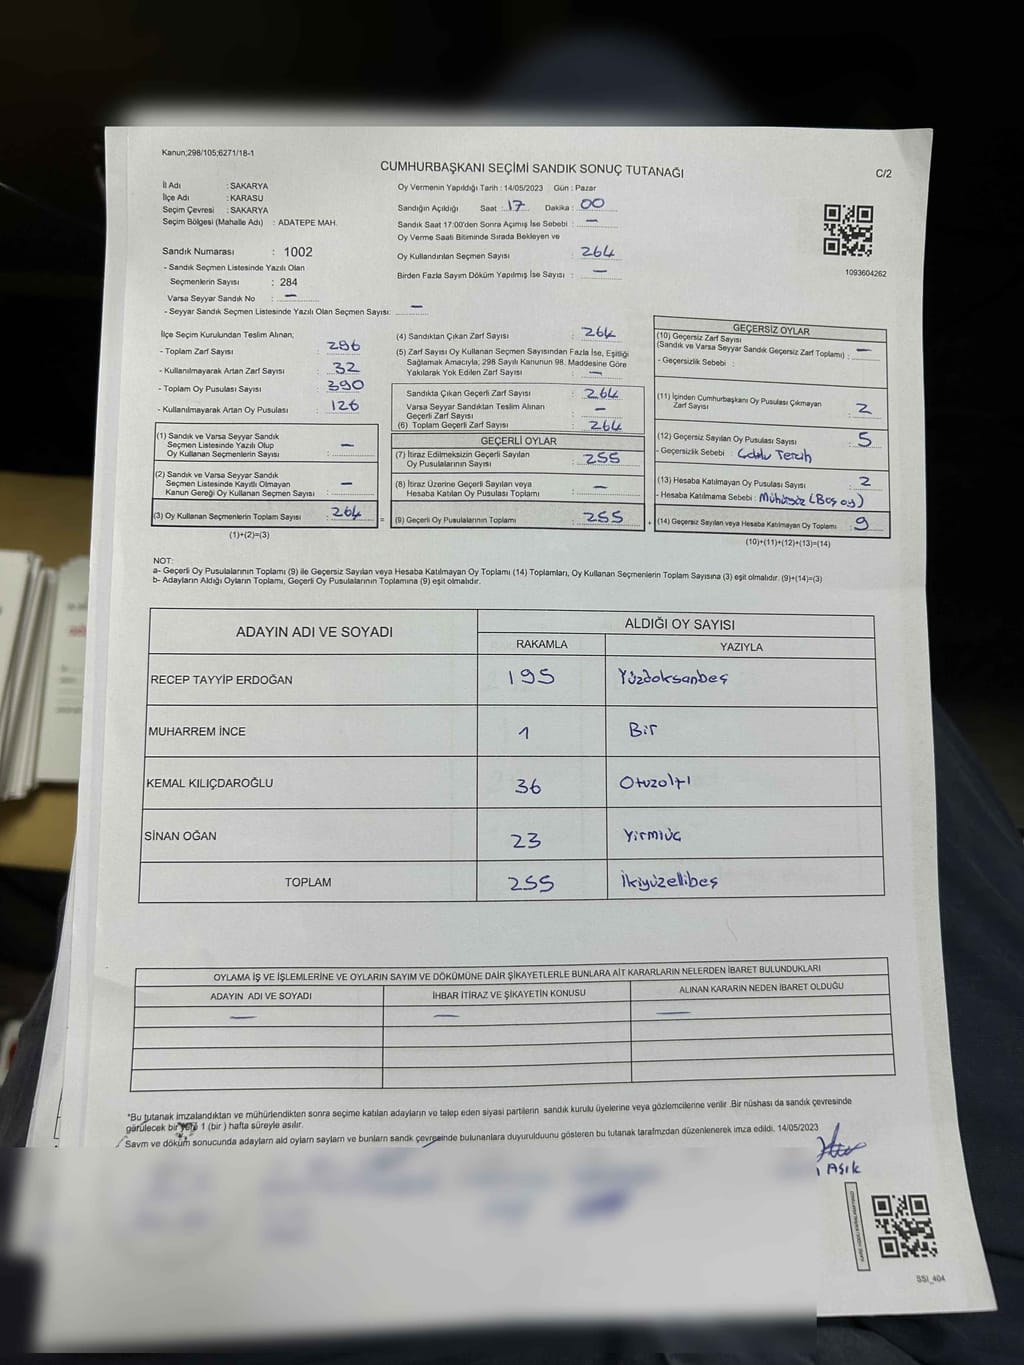 Kanun;298/105;6271/18-1
CUMHURBAŞKANI SEÇİMİ SANDIK SONUÇ TUTANAĞI
C/2
İl Adı : SAKARYA
İlçe Adı : KARASU
Seçim Çevresi : SAKARYA
Seçim Bölgesi (Mahalle Adı) : ADATEPE MAH.
Sandık Numarası : 1002
- Sandık Seçmen Listesinde Yazılı Olan
Seçmenlerin Sayısı : 284
Varsa Seyyar Sandık No : —
- Seyyar Sandık Seçmen Listesinde Yazılı Olan Seçmen Sayısı: —
Oy Vermenin Yapıldığı Tarih : 14/05/2023 Gün : Pazar
Sandığın Açıldığı Saat : 17 Dakika : 00
Sandık Saat 17:00'den Sonra Açımış İse Sebebi : —
Oy Verme Saati Bitiminde Sırada Bekleyen ve
Oy Kullandırılan Seçmen Sayısı : 264
Birden Fazla Sayım Döküm Yapılmış İse Sayısı : —
1093604262
İlçe Seçim Kurulundan Teslim Alınan;
- Toplam Zarf Sayısı : 296
- Kullanılmayarak Artan Zarf Sayısı : 32
- Toplam Oy Pusulası Sayısı : 390
- Kullanılmayarak Artan Oy Pusulası : 126
(1) Sandık ve Varsa Seyyar Sandık
Seçmen Listesinde Yazılı Olup
Oy Kullanan Seçmenlerin Sayısı : —
(2) Sandık ve Varsa Seyyar Sandık
Seçmen Listesinde Kayıtlı Olmayan
Kanun Gereği Oy Kullanan Seçmen Sayısı : —
(3) Oy Kullanan Seçmenlerin Toplam Sayısı : 264
(1)+(2)=(3)
(4) Sandıktan Çıkan Zarf Sayısı : 264
(5) Zarf Sayısı Oy Kullanan Seçmen Sayısından Fazla İse, Eşitliği
Sağlamak Amacıyla; 298 Sayılı Kanunun 98. Maddesine Göre
Yakılarak Yok Edilen Zarf Sayısı : —
Sandıkta Çıkan Geçerli Zarf Sayısı : 264
Varsa Seyyar Sandıktan Teslim Alınan
Geçerli Zarf Sayısı : —
(6) Toplam Geçerli Zarf Sayısı : 264
GEÇERLİ OYLAR
(7) İtiraz Edilmeksizin Geçerli Sayılan
Oy Pusulalarının Sayısı : 255
(8) İtiraz Üzerine Geçerli Sayılan veya
Hesaba Katılan Oy Pusulası Toplamı : —
= (9) Geçerli Oy Pusulalarının Toplamı : 255 +
GEÇERSİZ OYLAR
(10) Geçersiz Zarf Sayısı
(Sandık ve Varsa Seyyar Sandık Geçersiz Zarf Toplamı) : —
- Geçersizlik Sebebi :
(11) İçinden Cumhurbaşkanı Oy Pusulası Çıkmayan
Zarf Sayısı : 2
(12) Geçersiz Sayılan Oy Pusulası Sayısı : 5
- Geçersizlik Sebebi : Çoklu Tercih
(13) Hesaba Katılmayan Oy Pusulası Sayısı : 2
- Hesaba Katılmama Sebebi : Mühürsüz (Boş oy)
(14) Geçersiz Sayılan veya Hesaba Katılmayan Oy Toplamı : 9
(10)+(11)+(12)+(13)=(14)
NOT:
a- Geçerli Oy Pusulalarının Toplamı (9) ile Geçersiz Sayılan veya Hesaba Katılmayan Oy Toplamı (14) Toplamları, Oy Kullanan Seçmenlerin Toplam Sayısına (3) eşit olmalıdır. (9)+(14)=(3)
b- Adayların Aldığı Oyların Toplamı, Geçerli Oy Pusulalarının Toplamına (9) eşit olmalıdır.
ADAYIN ADI VE SOYADI
ALDIĞI OY SAYISI
RAKAMLA YAZIYLA
RECEP TAYYİP ERDOĞAN 195 Yüzdoksanbeş
MUHARREM İNCE 1 Bir
KEMAL KILIÇDAROĞLU 36 Otuzaltı
SİNAN OĞAN 23 Yirmiüç
TOPLAM 255 İkiyüzellibeş
OYLAMA İŞ VE İŞLEMLERİNE VE OYLARIN SAYIM VE DÖKÜMÜNE DAİR ŞİKAYETLERLE BUNLARA AİT KARARLARIN NELERDEN İBARET BULUNDUKLARI
ADAYIN ADI VE SOYADI İHBAR İTİRAZ VE ŞİKAYETİN KONUSU ALINAN KARARIN NEDEN İBARET OLDUĞU
— — —
*Bu tutanak imzalandıktan ve mühürlendikten sonra seçime katılan adayların ve talep eden siyasi partilerin sandık kurulu üyelerine veya gözlemcilerine verilir .Bir nüshası da sandık çevresinde
görülecek bir yere 1 (bir ) hafta süreyle asılır.
Sayım ve döküm sonucunda adayların ald oyların sayların ve bunların sandk çevresinde bulunanlara duyurulduunu gösteren bu tutanak tarafmzdan düzenlenerek imza edildi. 14/05/2023
Aşık
SSI_404